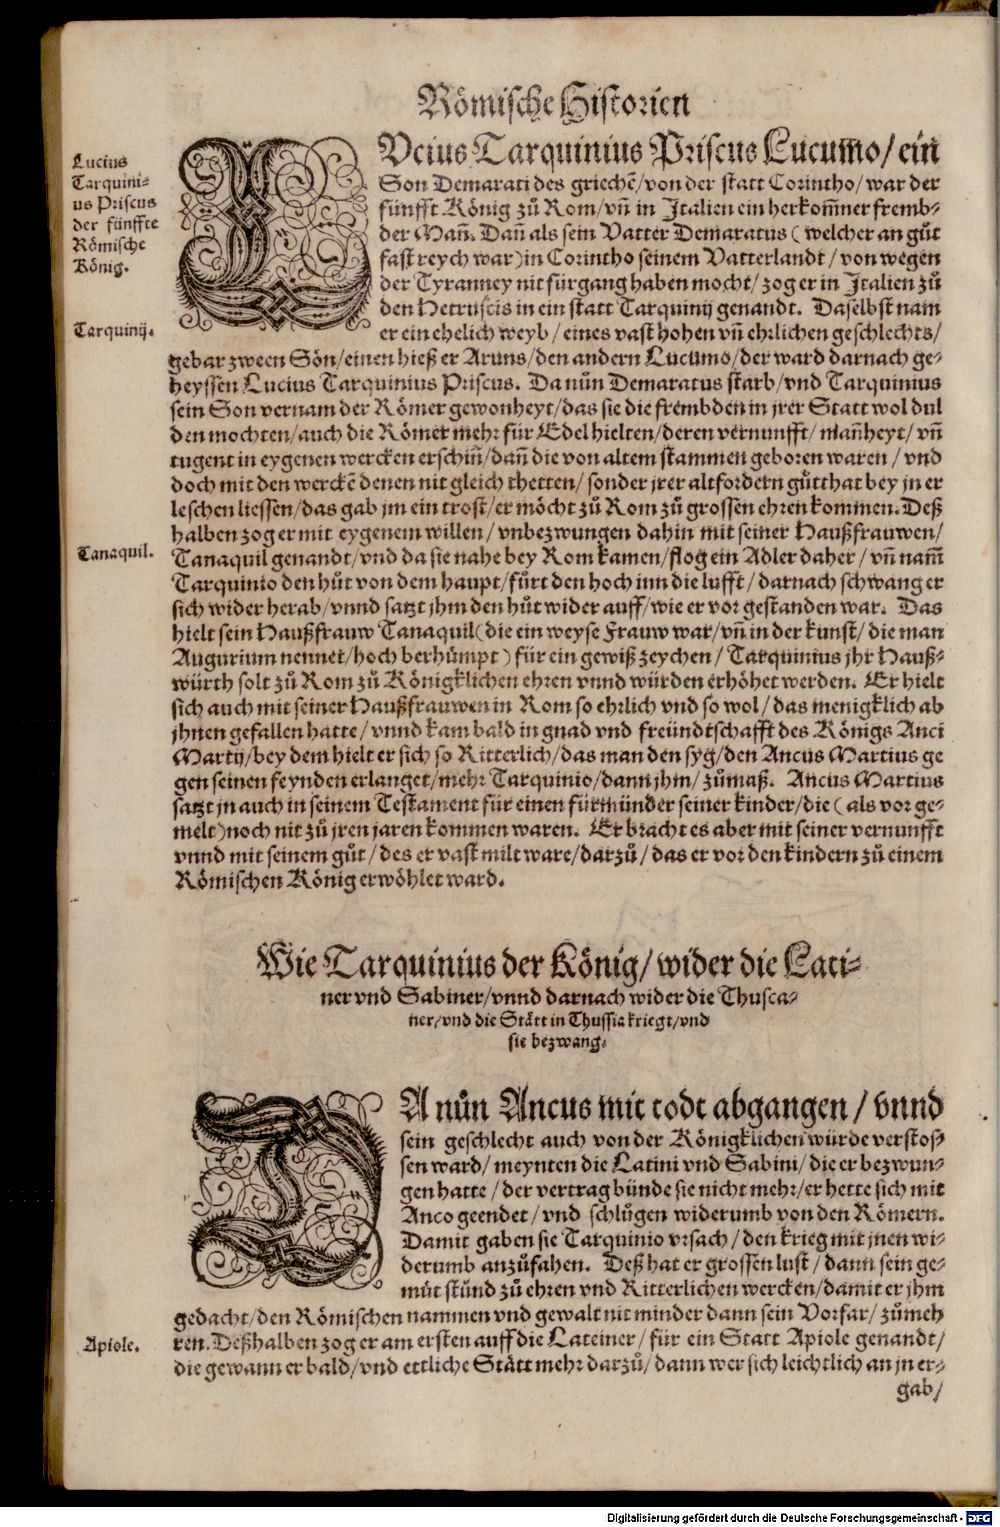 Römische Historien
Lucius
Tarquini-
us Priscus
der fünffte
Römische
König.
LVcius Tarquinius Priscus Lucum̃o/ ein
Son Demarati des griechẽ/ von der statt Corintho/ war der
fünfft König zů Rom/ vñ in Italien ein herkom̃ner fremb-
der Mañ. Dañ als sein Vatter Demaratus ( welcher an gůt
fast reych war) in Corintho seinem Vatterlandt / von wegen
der Tyranney nit fürgang haben mocht/ zog er in Italien zů
den Hetruscis in ein statt Tarquinij genandt. Daselbst nam
Tarquinij.
er ein ehelich weyb / eines vast hohen vñ ehrlichen geschlechts/
gebar zween Sön/ einen hieß er Aruns/ den andern Lucumo/ der ward darnach ge-
heyssen Lucius Tarquinius Priscus. Da nůn Demaratus starb/ vnd Tarquinius
sein Son vernam der Römer gewonheyt/ das sie die frembden in jrer Statt wol dul
den mochten/ auch die Römer mehr für Edel hielten/ deren vernunfft/ mañheyt/ vñ
tugent in eygenen wercken erschiñ/ dañ die von altem stammen geboren waren / vnd
doch mit den werckẽ denen nit gleich thetten/ sonder jrer altfordern gůtthat bey jn er
leschen liessen/ das gab jm ein trost/ er möcht zů Rom zů grossen ehren kommen. Deß
halben zog er mit eygenem willen / vnbezwungen dahin mit seiner Haußfrauwen/
Tanaquil.
Tanaquil genandt/ vnd da sie nahe bey Rom kamen/ flog ein Adler daher / vñ nam̃
Tarquinio den hůt von dem haupt/ fůrt den hoch inn die lufft / darnach schwang er
sich wider herab/ vnnd satzt jhm den hůt wider auff/ wie er vor gestanden war. Das
hielt sein Haußfrauw Tanaquil( die ein weyse Frauw war/ vñ in der kunst/ die man
Augurium nennet/ hoch berhümpt ) für ein gewiß zeychen / Tarquinius jhr Hauß-
würth solt zů Rom zů Königklichen ehren vnnd würden erhöhet werden. Er hielt
sich auch mit seiner Haußfrauwen in Rom so ehrlich vnd so wol / das menigklich ab
jhnen gefallen hatte / vnnd kam bald in gnad vnd freündtschafft des Königs Anci
Martij/ bey dem hielt er sich so Ritterlich/ das man den syg/ den Ancus Martius ge
gen seinen feynden erlanget/ mehr Tarquinio/ dann jhm / zůmaß. Ancus Martius
satzt jn auch in seinem Testament für einen fürmünder seiner kinder/ die ( als vor ge-
melt) noch nit zů jren jaren kommen waren. Er bracht es aber mit seiner vernunfft
vnnd mit seinem gůt / des er vast milt ware/ darzů / das er vor den kindern zů einem
Römischen König erwöhlet ward.
Wie Tarquinius der König/ wider die Lati-
ner vnd Sabiner/ vnnd darnach wider die Thusca-
ner/ vnd die Stätt in Thussia kriegt/ vnd
sie bezwang.
DA nůn Ancus mit todt abgangen / vnnd
sein geschlecht auch von der Königklichen würde verstos-
sen ward/ meynten die Latini vnd Sabini/ die er bezwun-
gen hatte / der vertrag bünde sie nicht mehr/ er hette sich mit
Anco geendet / vnd schlůgen widerumb von den Römern.
Damit gaben sie Tarquinio vrsach / den krieg mit jnen wi-
derumb anzůfahen. Deß hat er grossen lust / dann sein ge-
můt stůnd zů ehren vnd Ritterlichen wercken/ damit er jhm
gedacht/ den Römischen nammen vnd gewalt nit minder dann sein Vorfar / zůmeh
ren. Deßhalben zog er am ersten auff die Lateiner / für ein Statt Apiole genandt/
Apiole.
die gewann er bald/ vnd ettliche Stätt mehr darzů/ dann wer sich leichtlich an jn er-
gab/
Digitalisierung gefördert durch die Deutsche Forschungsgemeinschaft - DFG